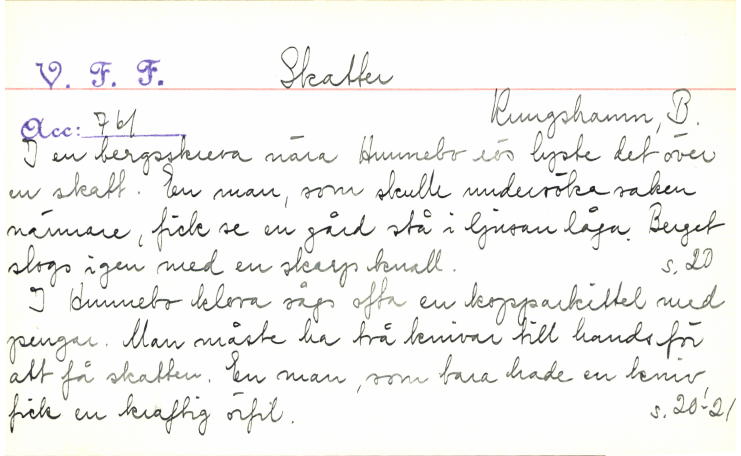 V. F. F. Skatter
Kungshamn, B.
Acc: 761
I en bergsskreva nära Hunnebo lyste det över
en skatt. En man, som skulle undersöka saken
närmare, fick se en gård stå i ljusan låga. Berget
slogs igen med en skarp knall. s. 20
I Hunnebo klova sågs ofta en kopparkittel med
pengar. Man måste ha två knivar till hands för
att få skatten. En man, som bara hade en kniv,
fick en kraftig örfil. s. 20-21